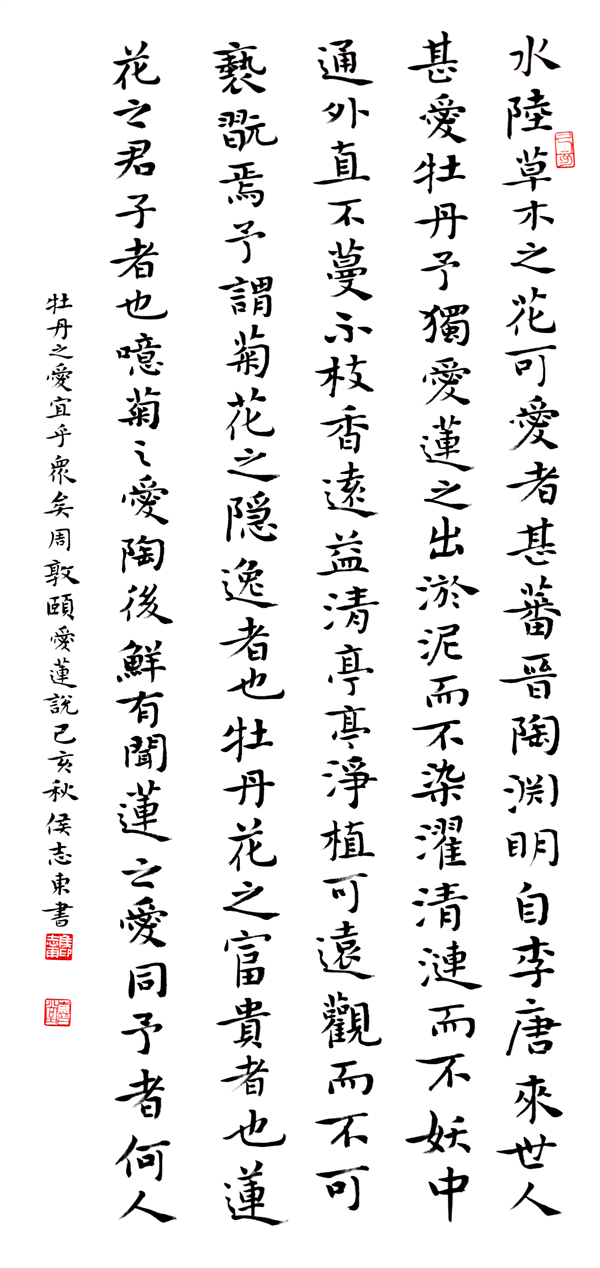 水陸草木之花可愛者甚蕃晉陶渊明自李唐來世人
甚愛牡丹予獨愛蓮之出淤泥而不染濯清漣而不妖中
通外直不蔓不枝香遠益清亭亭淨植可遠觀而不可
褻翫焉予謂菊花之隠逸者也牡丹花之富貴者也蓮
花之君子者也噫菊之愛陶後鮮有聞蓮之愛同予者何人
牡丹之愛宜乎衆矣周敦頤愛蓮說己亥秋侯志東書